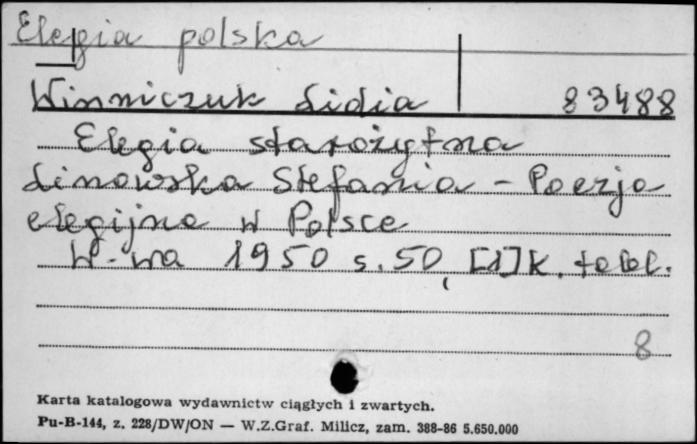 Elegia polska
Winniczuk Lidia 83488
Elegia starożytna
Linowska Stefania - Poezja
elegijna w Polsce
W-wa 1950 s. 50, [1] k. tabl.
8
Karta katalogowa wydawnictw ciągłych i zwartych.
Pu-B-144, z. 228/DW/ON — W.Z.Graf. Milicz, zam. 388-86 5.650.000